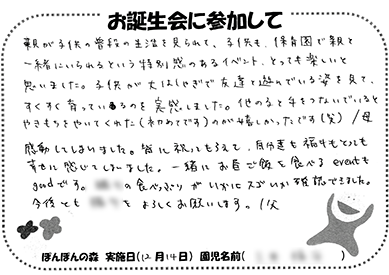 お誕生会に参加して
親が子供の普段の生活を見られて、子供も、保育園で親と
一緒にいられるという特別感のあるイベント、とっても楽しいと
思いました。子供が大はしゃぎで友達と遊んでいる姿を見て、
すくすく育っているのを実感しました。他の子と手をつないでいると
やきもちをやいてくれた(初めてです)のが嬉しかったです(笑) /母
感動してしまいました。皆に祝ってもらえて、自分達も福もとっても
幸せに感じてしまいました。一緒にお昼ご飯を食べるeventも
goodです。 の食べっぷりがいかにスゴいか確認できました。
今後とも をよろしくお願いします。/父
ぽんぽんの森 実施日(12月14日) 園児名前( )